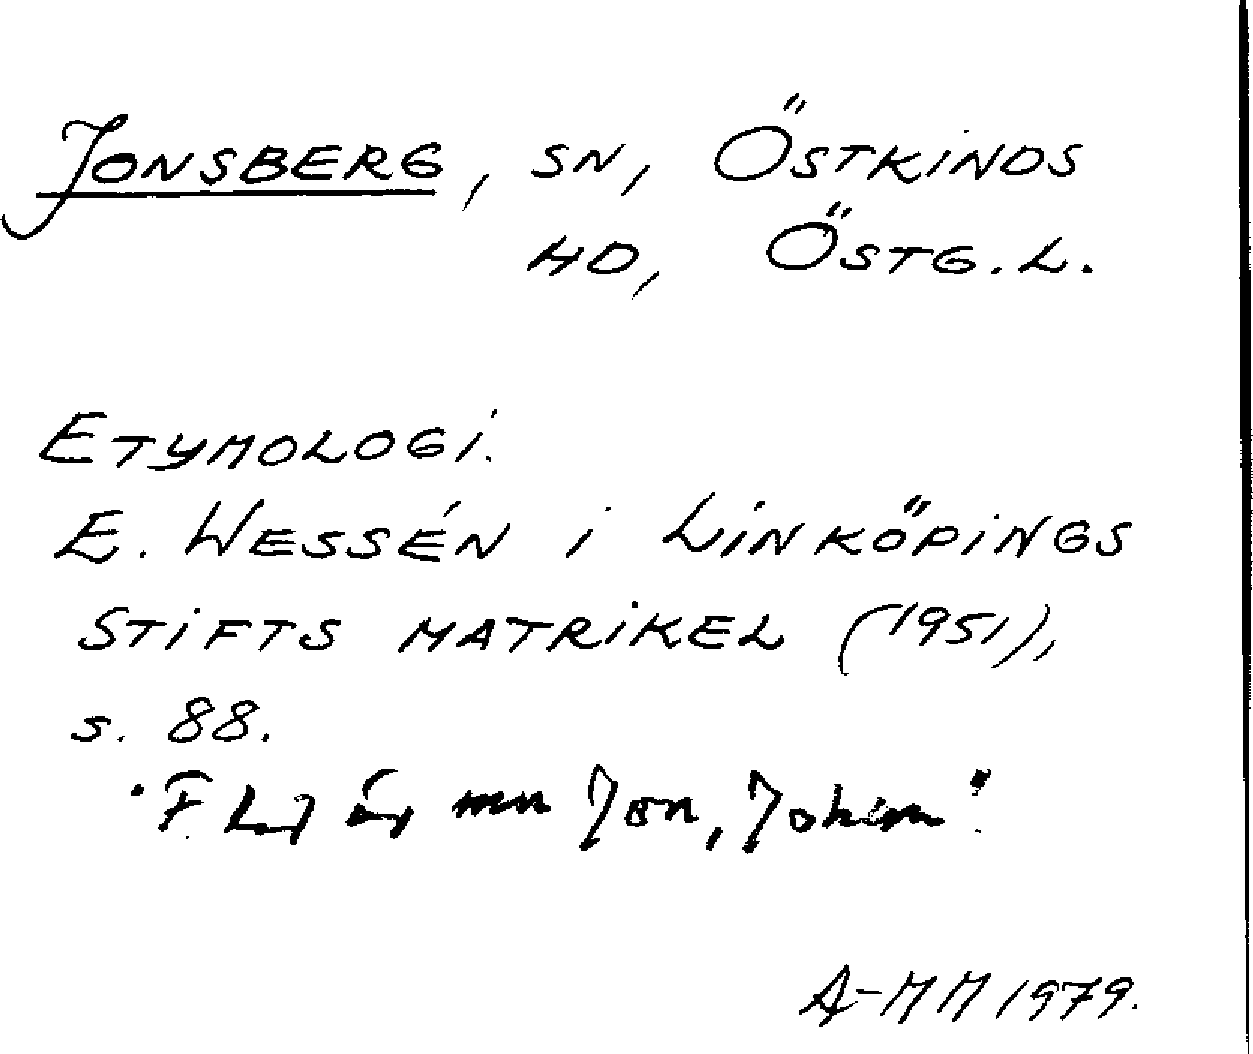 JONSBERG, SN, ÖSTKINDS
HD, ÖSTG.L.
ETYMOLOGI.
E. WESSÉN i LINKÖPINGS
STIFTS MATRIKEL (1951),
s. 88.
"F.L. är mn Jon, Johan".
A-MM 1979.